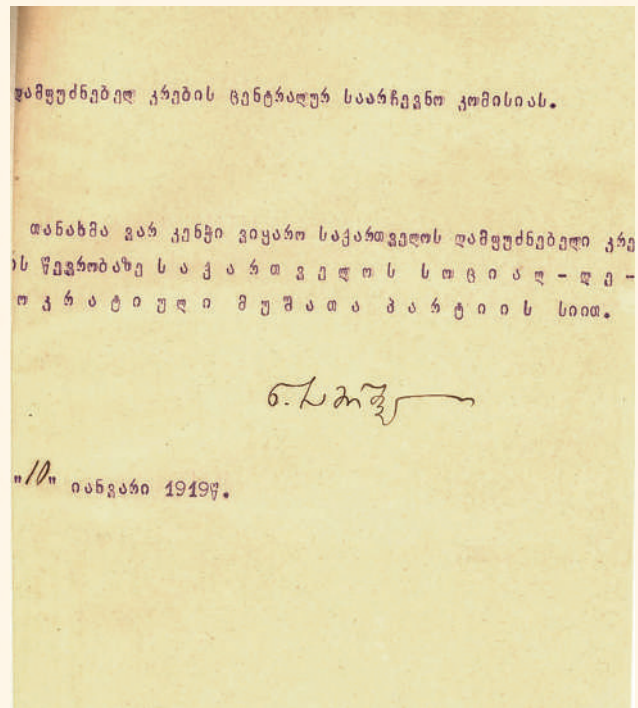 დამფუძნებელ კრების ცენტრალურ საარჩევნო კომისიას.
თანახმა ვარ კენჭი ვიყარო საქართველოს დამფუძნებელი კრე
ის წევრობაზე ს ა ქ ა რ თ ვ ე ლ ო ს ს ო ც ი ა ლ - დ ე -
ო კ რ ა ტ ი უ ლ ი მ უ შ ა თ ა პ ა რ ტ ი ი ს სიით.
"10" იანვარი 1919წ.